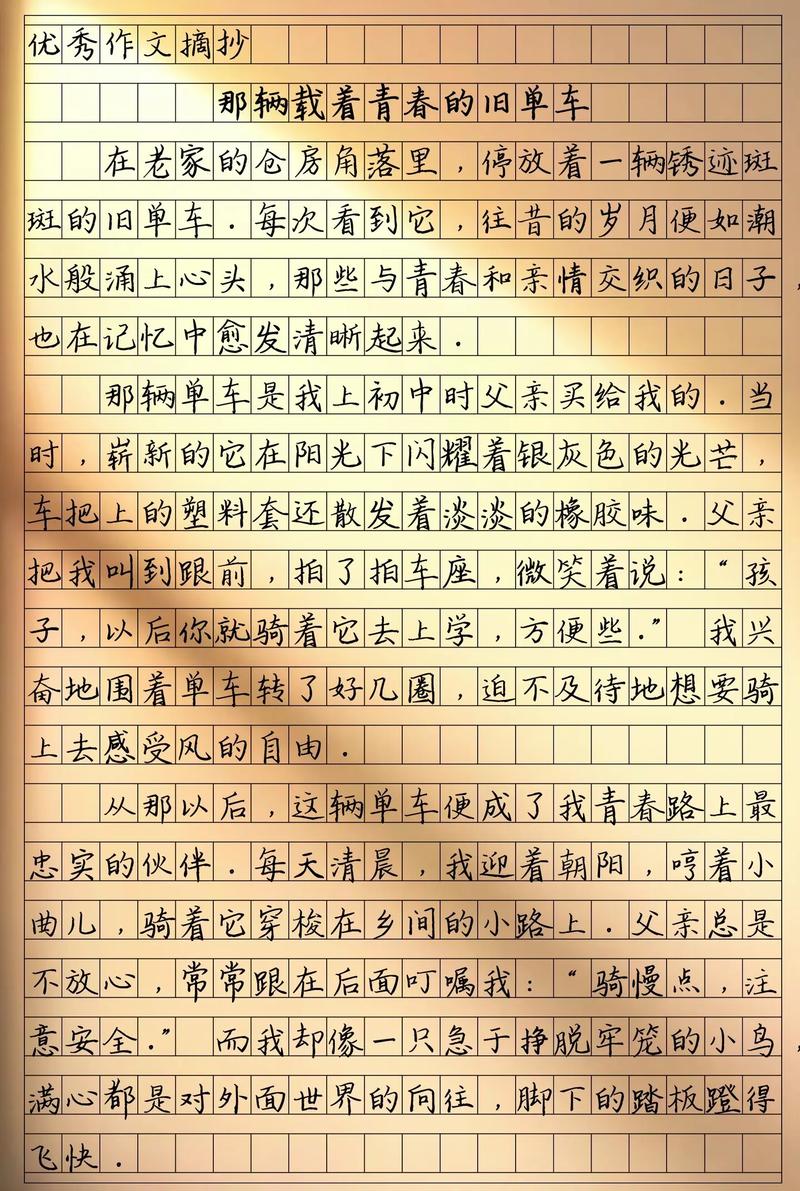 优秀作文摘抄
那辆载着青春的旧单车
在老家的仓房角落里，停放着一辆锈迹斑
斑的旧单车．每次看到它，往昔的岁月便如潮
水般涌上心头，那些与青春和亲情交织的日子，
也在记忆中愈发清晰起来．
那辆单车是我上初中时父亲买给我的．当
时，崭新的它在阳光下闪耀着银灰色的光芒，
车把上的塑料套还散发着淡淡的橡胶味．父亲
把我叫到跟前，拍了拍车座，微笑着说：“孩
子，以后你就骑着它去上学，方便些．” 我兴
奋地围着单车转了好几圈，迫不及待地想要骑
上去感受风的自由．
从那以后，这辆单车便成了我青春路上最
忠实的伙伴．每天清晨，我迎着朝阳，哼着小
曲儿，骑着它穿梭在乡间的小路上．父亲总是
不放心，常常跟在后面叮嘱我：“骑慢点，注
意安全．” 而我却像一只急于挣脱牢笼的小鸟，
满心都是对外面世界的向往，脚下的踏板蹬得
飞快．